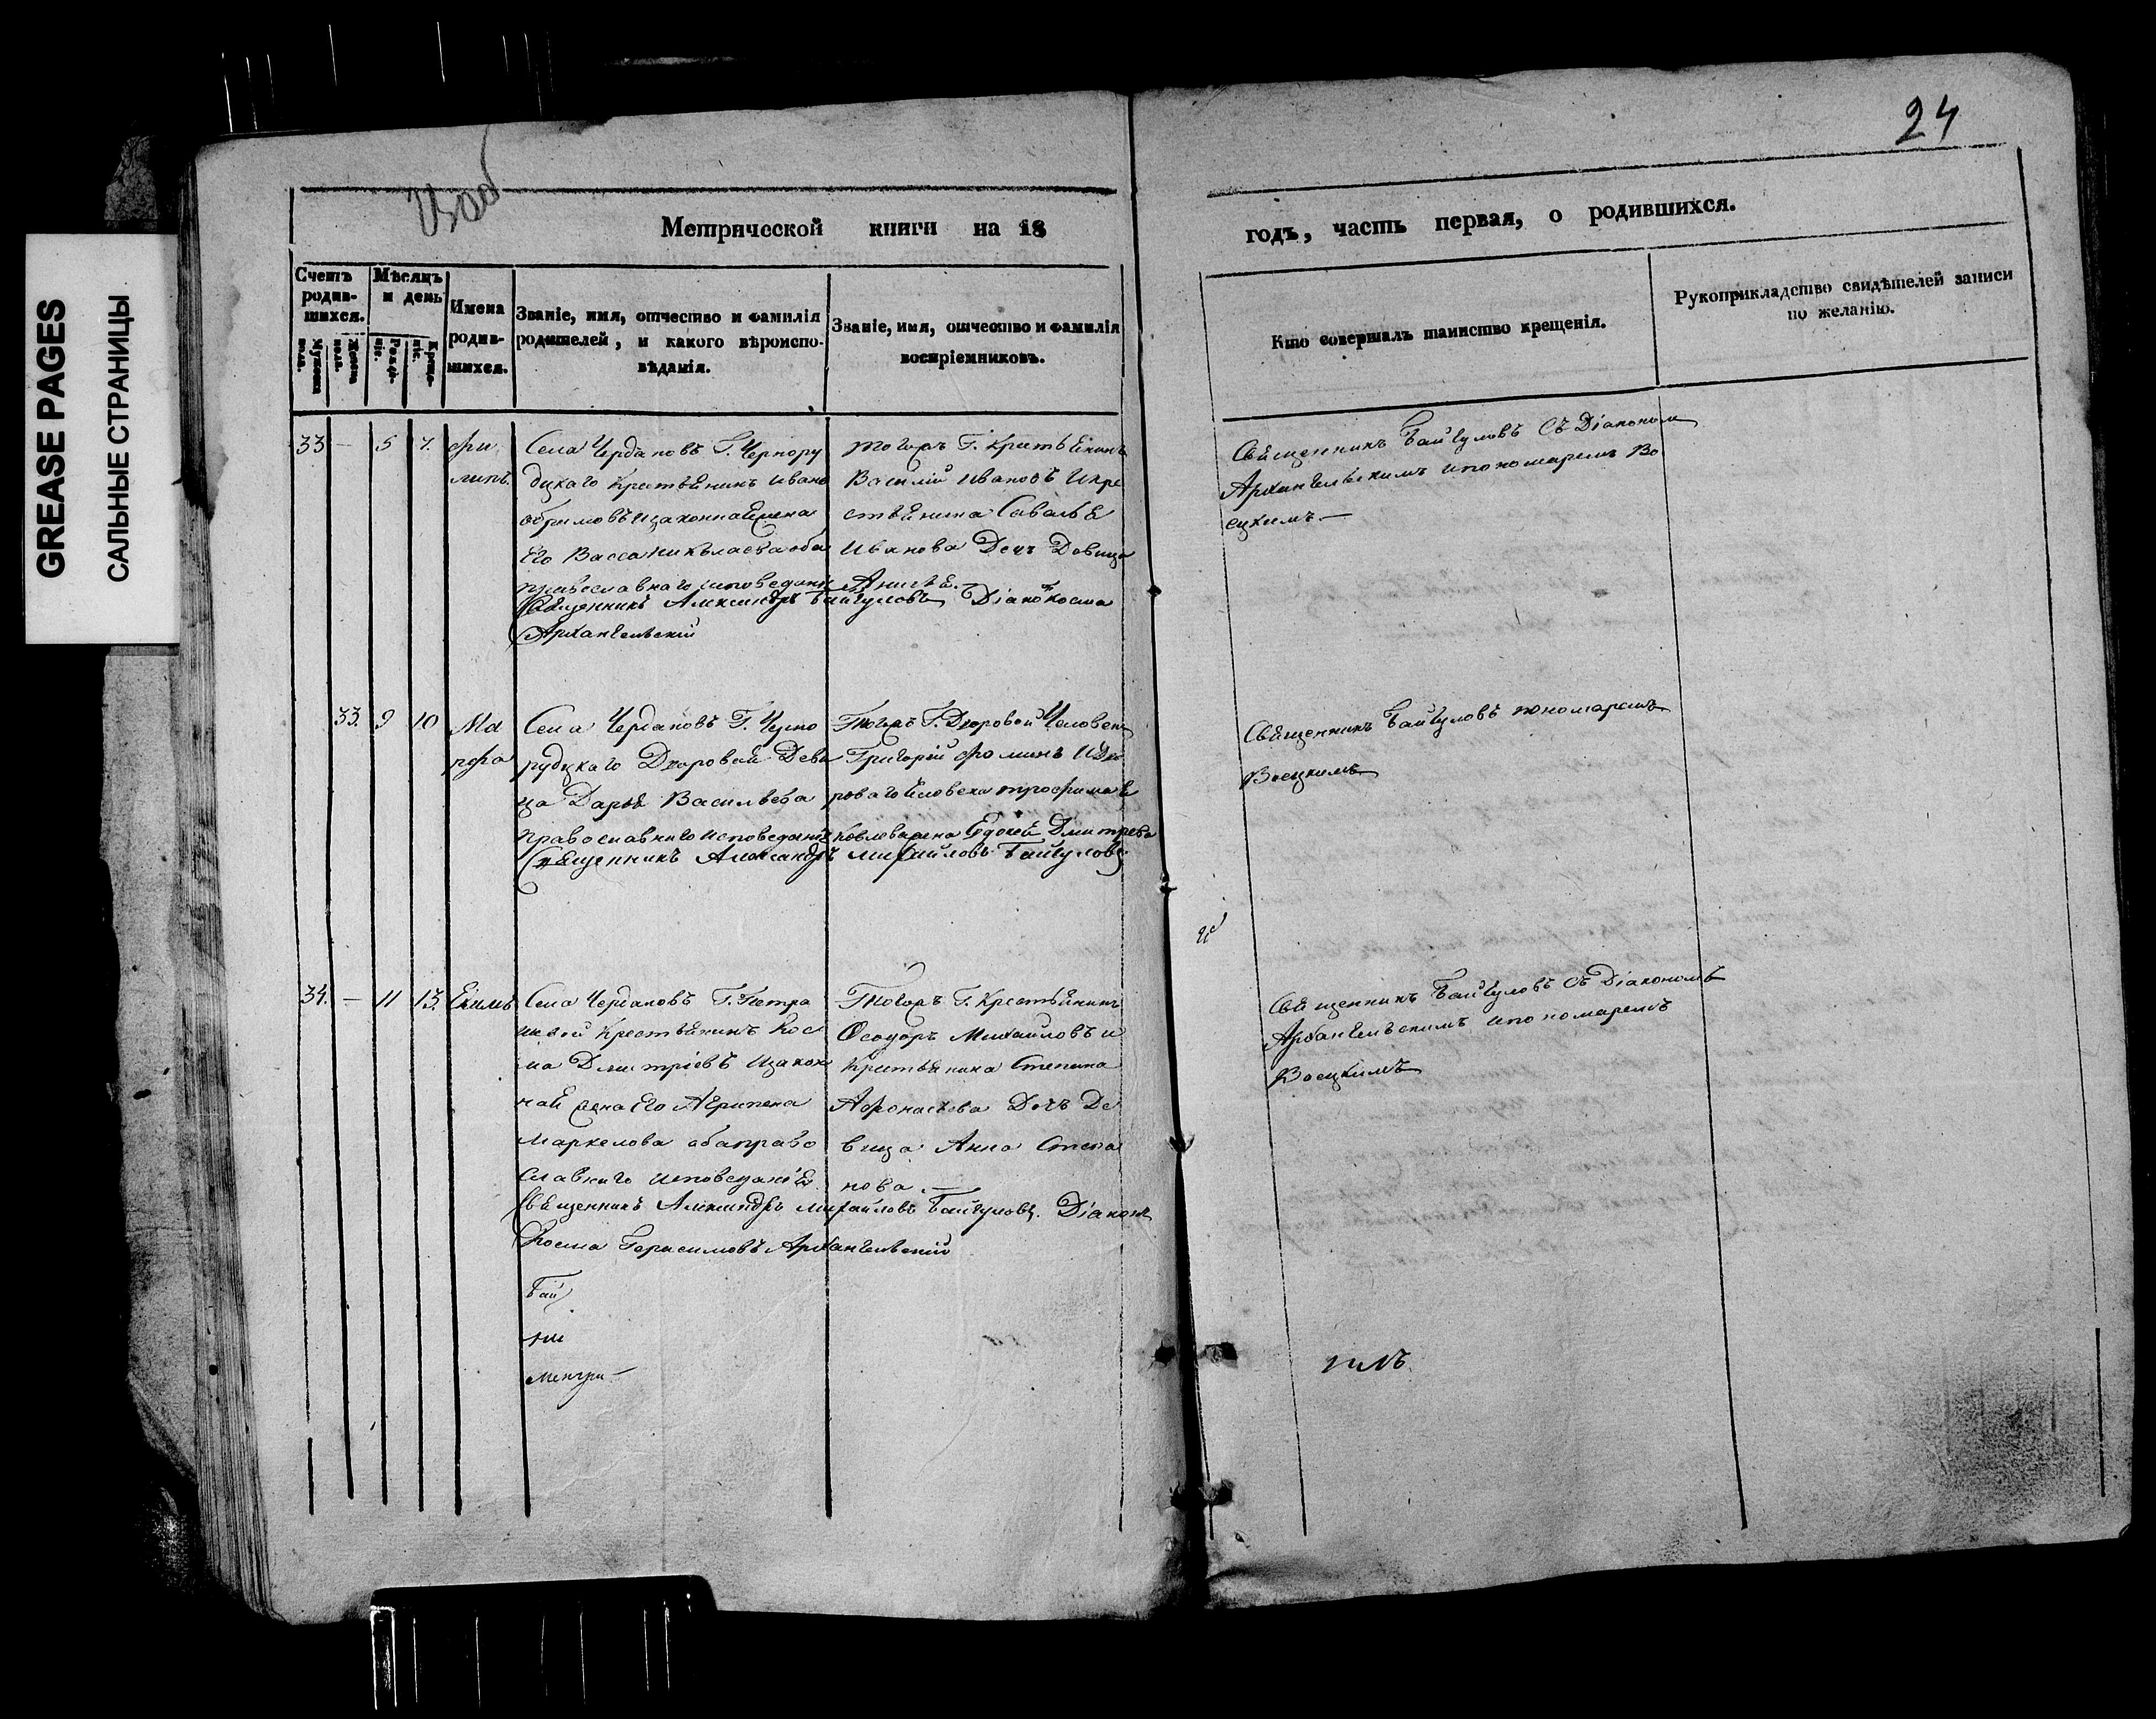 GREASE PAGES
САЛЬНЫЕ СТРАНИЦЫ
24
Метрической книги на 18
годъ, часть первая, о родившихся.
Счетъ родившихся.
Мужеска пола.
Женска пола.
Мѣсяцъ и день
Рожденіе.
Крещеніе.
Имена родившихся.
Званіе, имя, отчество и фамилія
родителей, и какого вѣроиспо-
вѣданія.
Званіе, имя, отчество и фамилія
воспріемниковъ.
Кто совершалъ таинство крещенія.
Рукоприкладство свидѣтелей записи
по желанію.
33 — 5 7. Фи
липъ.
Села Чердаковъ Г. Чернору
дцкаго Крестьянинъ Ивано
его Васса обѣ
православнаго исповедани
Священникъ Александръ Байгуловъ Діаконъ Косма
Архангельскій
тогожъ Г. Крестьянинъ
Василій Ивановъ и кре
стьянина Савелье
Иванова Дочь Девица
Священникъ Байгуловъ съ Діакономъ
Архангельскимъ и пономаремъ Во
ецкимъ —
33. 9 10 Ма
рфа
Села Чердаковъ Г. Черно
рудцкаго Дворовой Деви
ца Дарья Васильева
православнаго исповедания
Священникъ Александръ Михайловъ Байгуловъ
Тогожъ Г. Дворовой Человекъ
Григорій Фоминъ и Дво
роваго человека Трофима
Дмитрева
Священникъ Байгуловъ пономаремъ
Воецкимъ
34. — 11 13. Екимъ
Села Чердаковъ Г. Петра
Крестьянинъ Кос
ма Дмитріевъ и закон
ная жена его Агрипена
Маркелова оба право
славнаго исповеданія
Священникъ Александръ Михайловъ Байгуловъ. Діаконъ
Косма Герасимовъ Архангельскій
Тогожъ Г. Крестьянинъ
Феодоръ Михайловъ и
Крестьянина Степана
Афонасьева Дочь Де
вица Анна Степа
нова. —
Священникъ Байгуловъ съ Діакономъ
Архангельскимъ и пономаремъ
Воецкимъ
Бай